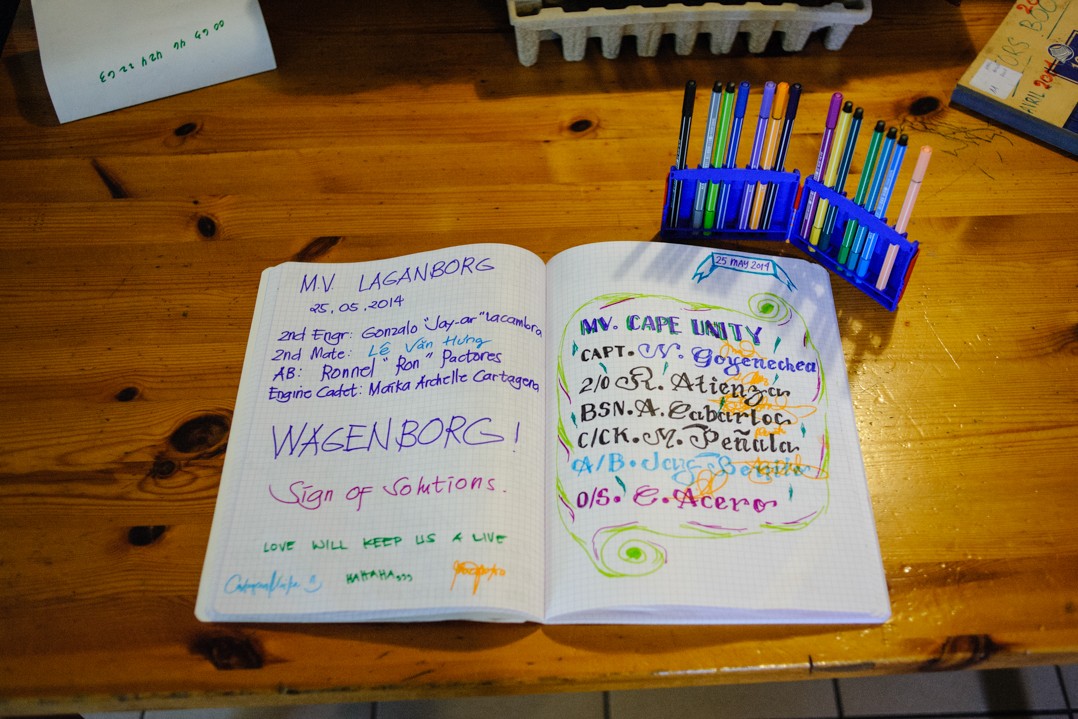 00 63 46 424 22 63
M.V. LAGANBORG
25.05.2014
2nd Engr: Gonzalo "Jay-ar" Lacambra
2nd Mate: Lê Văn Hưng
AB: Ronnel "Ron" Pactores
Engine Cadet: Marka Archelle Cartagena
WAGENBORG!
Sign of Solutions.
LOVE WILL KEEP US A LIVE
HAHAHA,,,
25 MAY 2014
MV. CAPE UNITY
CAPT. N. Goyenechea
2/O R. Atienza
BSN. A. Cabarloc
C/CK. M. Peñula
A/B. Jay
O/S. C. Acero